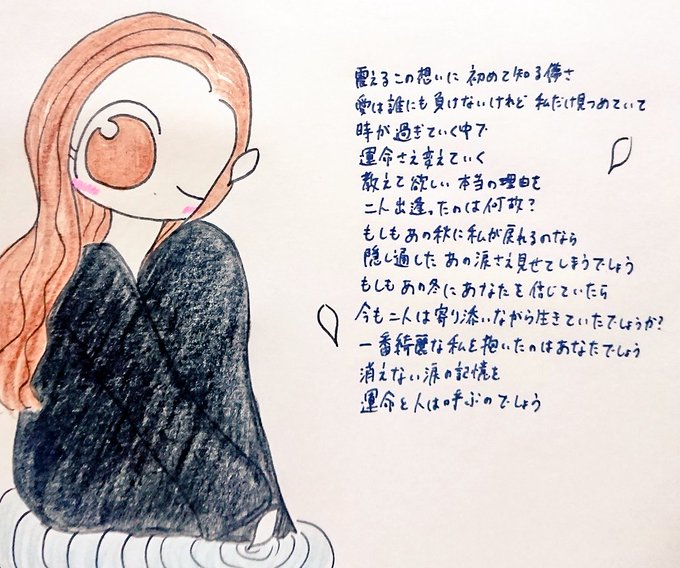 震えるこの想いに 初めて知る儚さ
愛は誰にも負けないけれど 私だけ見つめていて
時が過ぎていく中で
運命さえ変えていく
教えて欲しい 本当の理由を
二人出逢ったのは何故?
もしもあの秋に私が戻れるのなら
隠し通した あの涙さえ見せてしまうでしょう
もしもあの冬にあなたを信じていたら
今も二人は寄り添いながら生きていたでしょうか?
一番綺麗な私を抱いたのはあなたでしょう
消えない涙の記憶を
運命と人は呼ぶのでしょう